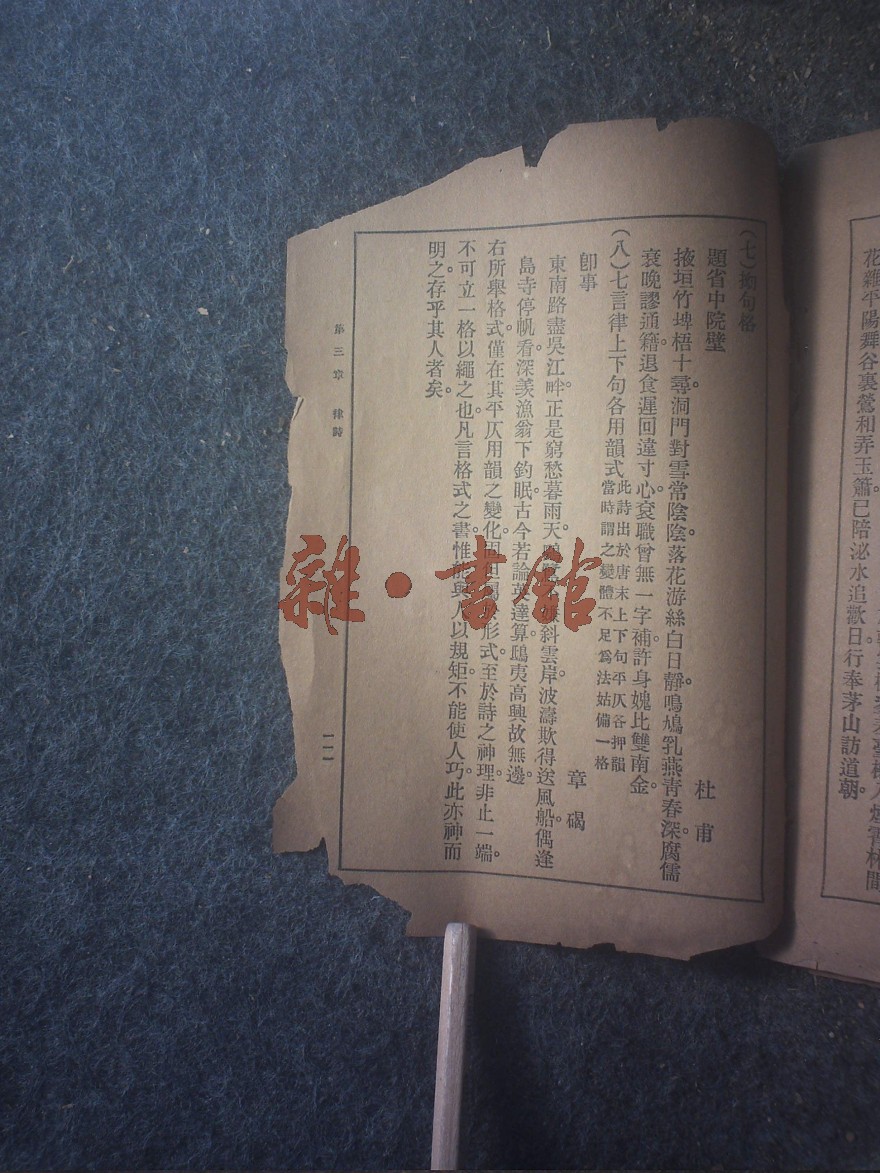 花雜平陽舞谷裏鶯和弄玉簫已陪泌水追歡日行奉茅山訪道朝。
(七)拗句格
題省中院壁 杜甫
掖垣竹埤梧十尋。洞門對雪常陰陰。落花游絲白日靜。鳴鳩乳燕青春深。腐儒
衰晚謬通籍。退食遲回違寸心。袞職曾無一字補。許身媿比雙南金。
(八)七言律上下句各用韻式此詩出於唐末上下句平仄各押韻
當時謂之變體不足爲法姑備一格
卽事 章碣
東南路盡吳江畔。正是窮愁暮雨天。鷗鷺嫌斜雲岸。波濤欺得送風船。偶逢
島寺停帆看。深羨漁翁下釣眠。古今若論英達算。鴟夷高興故無邊。
右所舉格式。僅在其平仄用韻之變化。形式。至於詩之神理。非止一端。
不可立一格以繩之也。凡言格式之書。惟能與人以規矩。不能使人巧。此亦神而
明之。存乎其人者矣。
第三章 律詩
一一
雜·書館